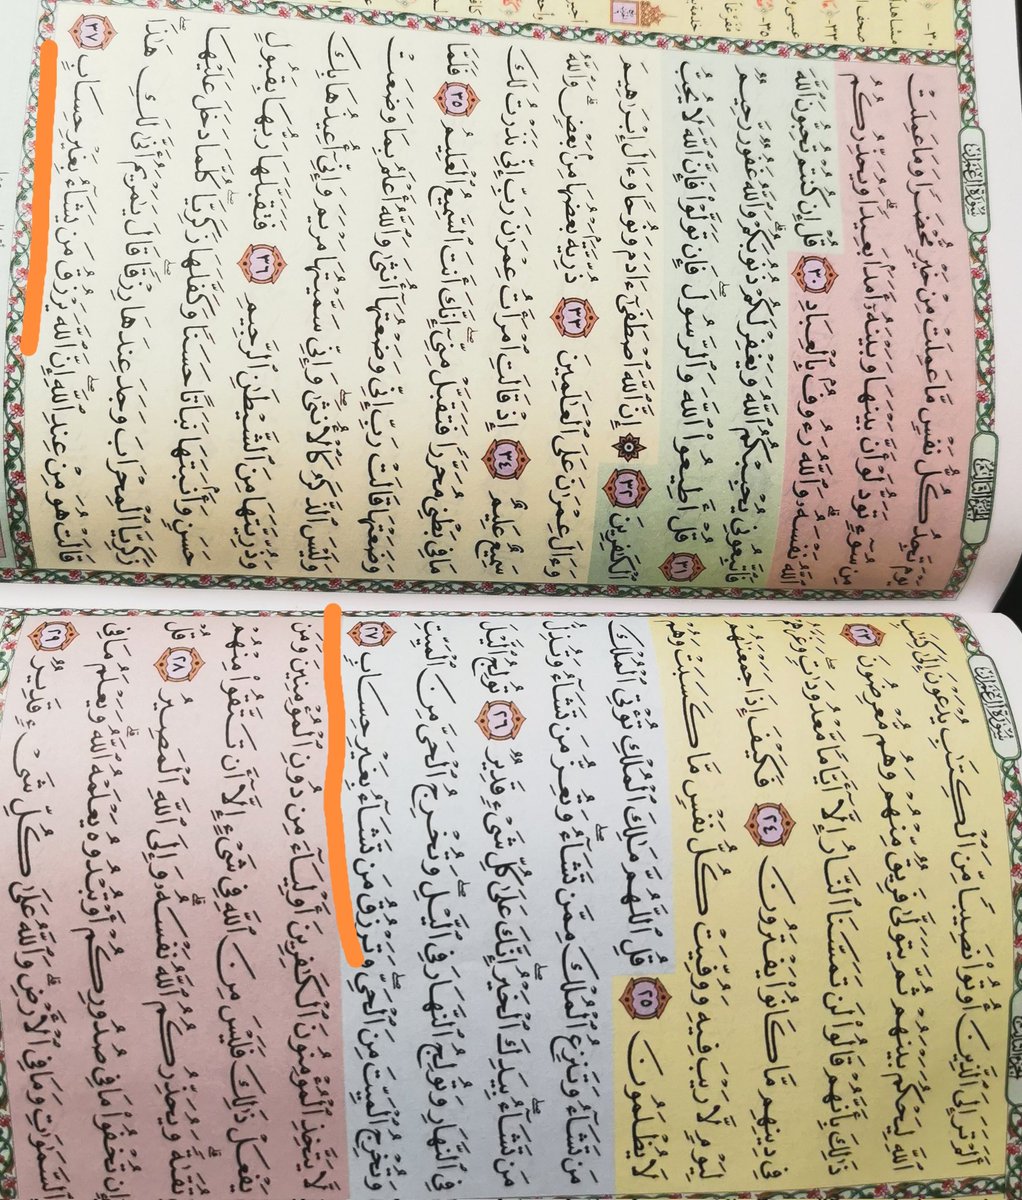 سُورَةُ آلِ عِمْرَانَ
أَلَمْ تَرَ إِلَى ٱلَّذِينَ أُوتُوا۟ نَصِيبًا مِّنَ ٱلْكِتَٰبِ يُدْعَوْنَ إِلَىٰ كِتَٰبِ
ٱللَّهِ لِيَحْكُمَ بَيْنَهُمْ ثُمَّ يَتَوَلَّىٰ فَرِيقٌ مِّنْهُمْ وَهُم مُّعْرِضُونَ ٢٣
ذَٰلِكَ بِأَنَّهُمْ قَالُوا۟ لَن تَمَسَّنَا ٱلنَّارُ إِلَّآ أَيَّامًا مَّعْدُودَٰتٍ وَغَرَّهُمْ
فِى دِينِهِم مَّا كَانُوا۟ يَفْتَرُونَ ٢٤ فَكَيْفَ إِذَا جَمَعْنَٰهُمْ
لِيَوْمٍ لَّا رَيْبَ فِيهِ وَوُفِّيَتْ كُلُّ نَفْسٍ مَّا كَسَبَتْ وَهُمْ
لَا يُظْلَمُونَ ٢٥ قُلِ ٱللَّهُمَّ مَٰلِكَ ٱلْمُلْكِ تُؤْتِى ٱلْمُلْكَ
مَن تَشَآءُ وَتَنزِعُ ٱلْمُلْكَ مِمَّن تَشَآءُ وَتُعِزُّ مَن تَشَآءُ وَتُذِلُّ
مَن تَشَآءُ ۖ بِيَدِكَ ٱلْخَيْرُ ۖ إِنَّكَ عَلَىٰ كُلِّ شَىْءٍ قَدِيرٌ ٢٦ تُولِجُ ٱلَّيْلَ
فِى ٱلنَّهَارِ وَتُولِجُ ٱلنَّهَارَ فِى ٱلَّيْلِ ۖ وَتُخْرِجُ ٱلْحَىَّ مِنَ ٱلْمَيِّتِ
وَتُخْرِجُ ٱلْمَيِّتَ مِنَ ٱلْحَىِّ ۖ وَتَرْزُقُ مَن تَشَآءُ بِغَيْرِ حِسَابٍ ٢٧
لَّا يَتَّخِذِ ٱلْمُؤْمِنُونَ ٱلْكَٰفِرِينَ أَوْلِيَآءَ مِن دُونِ ٱلْمُؤْمِنِينَ ۖ وَمَن
يَفْعَلْ ذَٰلِكَ فَلَيْسَ مِنَ ٱللَّهِ فِى شَىْءٍ إِلَّآ أَن تَتَّقُوا۟ مِنْهُمْ
تُقَىٰةً ۗ وَيُحَذِّرُكُمُ ٱللَّهُ نَفْسَهُۥ ۗ وَإِلَى ٱللَّهِ ٱلْمَصِيرُ ٢٨ قُلْ
إِن تُخْفُوا۟ مَا فِى صُدُورِكُمْ أَوْ تُبْدُوهُ يَعْلَمْهُ ٱللَّهُ ۗ وَيَعْلَمُ مَا فِى
ٱلسَّمَٰوَٰتِ وَمَا فِى ٱلْأَرْضِ ۗ وَٱللَّهُ عَلَىٰ كُلِّ شَىْءٍ قَدِيرٌ ٢٩
الجزء الثالث
سُورَةُ آلِ عِمْرَانَ
يَوْمَ تَجِدُ كُلُّ نَفْسٍ مَّا عَمِلَتْ مِنْ خَيْرٍ مُّحْضَرًا وَمَا عَمِلَتْ
مِن سُوٓءٍ تَوَدُّ لَوْ أَنَّ بَيْنَهَا وَبَيْنَهُۥٓ أَمَدًۢا بَعِيدًا ۗ وَيُحَذِّرُكُمُ
ٱللَّهُ نَفْسَهُۥ ۗ وَٱللَّهُ رَءُوفٌۢ بِٱلْعِبَادِ ٣٠ قُلْ إِن كُنتُمْ تُحِبُّونَ ٱللَّهَ
فَٱتَّبِعُونِى يُحْبِبْكُمُ ٱللَّهُ وَيَغْفِرْ لَكُمْ ذُنُوبَكُمْ ۗ وَٱللَّهُ غَفُورٌ رَّحِيمٌ
٣١ قُلْ أَطِيعُوا۟ ٱللَّهَ وَٱلرَّسُولَ ۖ فَإِن تَوَلَّوْا۟ فَإِنَّ ٱللَّهَ لَا يُحِبُّ
ٱلْكَٰفِرِينَ ٣٢ ۞ إِنَّ ٱللَّهَ ٱصْطَفَىٰٓ ءَادَمَ وَنُوحًا وَءَالَ إِبْرَٰهِيمَ
وَءَالَ عِمْرَٰنَ عَلَى ٱلْعَٰلَمِينَ ٣٣ ذُرِّيَّةًۢ بَعْضُهَا مِنۢ بَعْضٍ ۗ وَٱللَّهُ
سَمِيعٌ عَلِيمٌ ٣٤ إِذْ قَالَتِ ٱمْرَأَتُ عِمْرَٰنَ رَبِّ إِنِّى نَذَرْتُ لَكَ
مَا فِى بَطْنِى مُحَرَّرًا فَتَقَبَّلْ مِنِّىٓ ۖ إِنَّكَ أَنتَ ٱلسَّمِيعُ ٱلْعَلِيمُ ٣٥ فَلَمَّا
وَضَعَتْهَا قَالَتْ رَبِّ إِنِّى وَضَعْتُهَآ أُنثَىٰ وَٱللَّهُ أَعْلَمُ بِمَا وَضَعَتْ
وَلَيْسَ ٱلذَّكَرُ كَٱلْأُنثَىٰ ۖ وَإِنِّى سَمَّيْتُهَا مَرْيَمَ وَإِنِّىٓ أُعِيذُهَا بِكَ
وَذُرِّيَّتَهَا مِنَ ٱلشَّيْطَٰنِ ٱلرَّجِيمِ ٣٦ فَتَقَبَّلَهَا رَبُّهَا بِقَبُولٍ
حَسَنٍ وَأَنۢبَتَهَا نَبَاتًا حَسَنًا وَكَفَّلَهَا زَكَرِيَّا ۖ كُلَّمَا دَخَلَ عَلَيْهَا
زَكَرِيَّا ٱلْمِحْرَابَ وَجَدَ عِندَهَا رِزْقًا ۖ قَالَ يَٰمَرْيَمُ أَنَّىٰ لَكِ هَٰذَا ۖ
قَالَتْ هُوَ مِنْ عِندِ ٱللَّهِ ۖ إِنَّ ٱللَّهَ يَرْزُقُ مَن يَشَآءُ بِغَيْرِ حِسَابٍ ٣٧